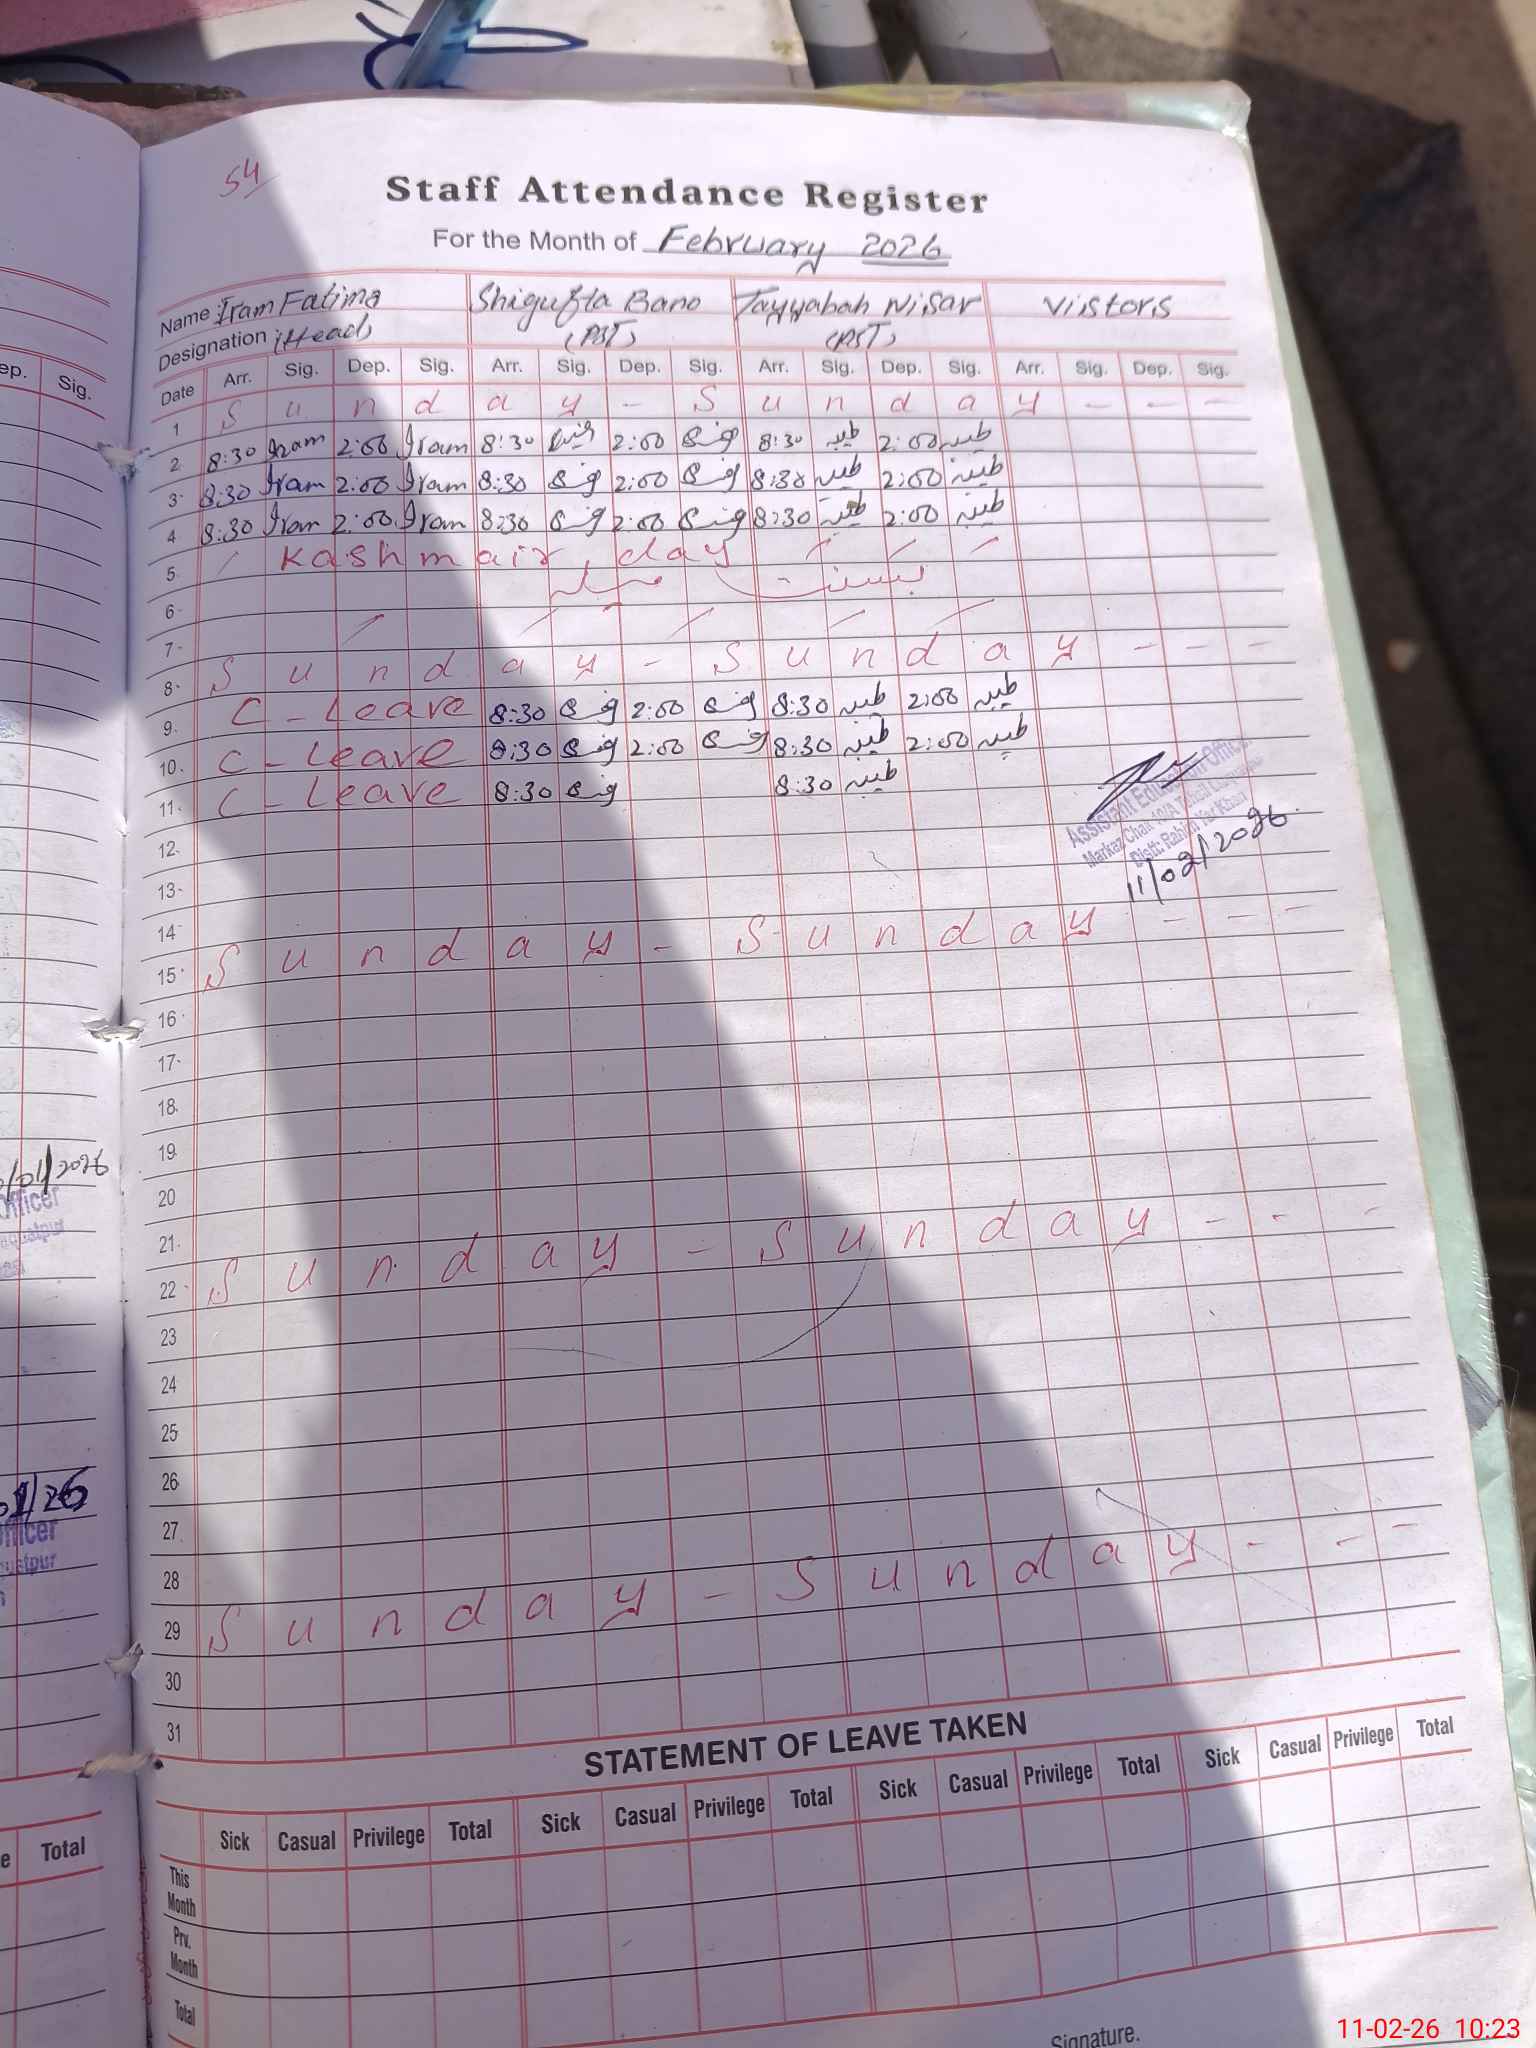 54
Staff Attendance Register
For the Month of February 2026
Name Iram Fatima Shigufta Bano Tayyabah Nisar Viistors
Designation (Head) (PST) (PST)
Date Arr. Sig. Dep. Sig. Arr. Sig. Dep. Sig. Arr. Sig. Dep. Sig. Arr. Sig. Dep. Sig.
1 S u n d a y - S u n d a y - - -
2. 8:30 Iram 2:00 Iram 8:30 2:00 8:30 طیبہ 2:00 طیبہ
3. 8:30 Iram 2:00 Iram 8:30 2:00 8:30 طیبہ 2:00 طیبہ
4 8:30 Iram 2:00 Iram 8:30 2:00 8:30 طیبہ 2:00 طیبہ
5. Kashmair day
6. بسنت میلہ
7.
8. S u n d a y - S u n d a y - - -
9. C - Leave 8:30 2:00 8:30 طیبہ 2:00 طیبہ
10. C - Leave 8:30 2:00 8:30 طیبہ 2:00 طیبہ
11. C - Leave 8:30 8:30 طیبہ
Assistant Education Officer
Markaz Chak 10/A Tehsil
Distt: Rahim Yar Khan
11/02/2026
12.
13.
14
15. S u n d a y - S u n d a y - - -
16.
17.
18.
19.
20
21.
22. S u n d a y - S u n d a y - - -
23
24
25
26
27
28
29 S u n d a y - S u n d a y - - -
30
31
STATEMENT OF LEAVE TAKEN
Sick Casual Privilege Total Sick Casual Privilege Total Sick Casual Privilege Total Sick Casual Privilege Total
This Month
Prv. Month
Total
Signature.
ep. Sig.
/01/2026
Officer
01/26
fficer
ustpur
e Total
11-02-26 10:23